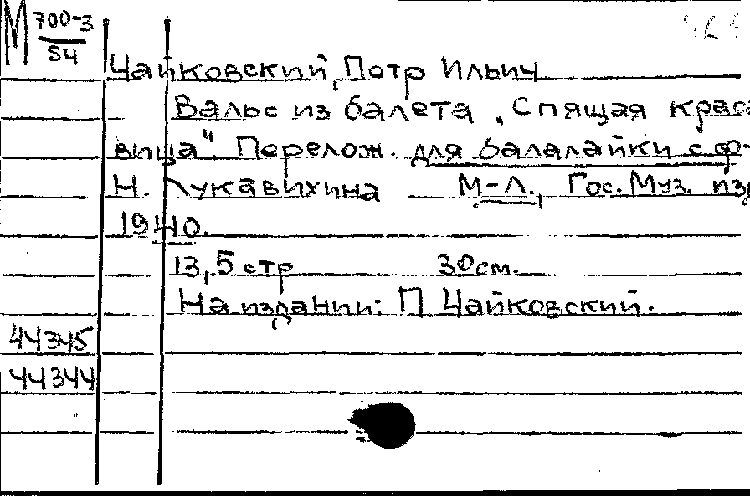 М 700-3
54
Чайковский, Петр Ильич
Вальс из балета „Спящая краса
вица". Перелож. для балалайки с ф-
Н. Лукавихина М-Л., Гос. Муз. изд
1940.
13,5 стр 30см.
На издании: П Чайковский.
44345
44344